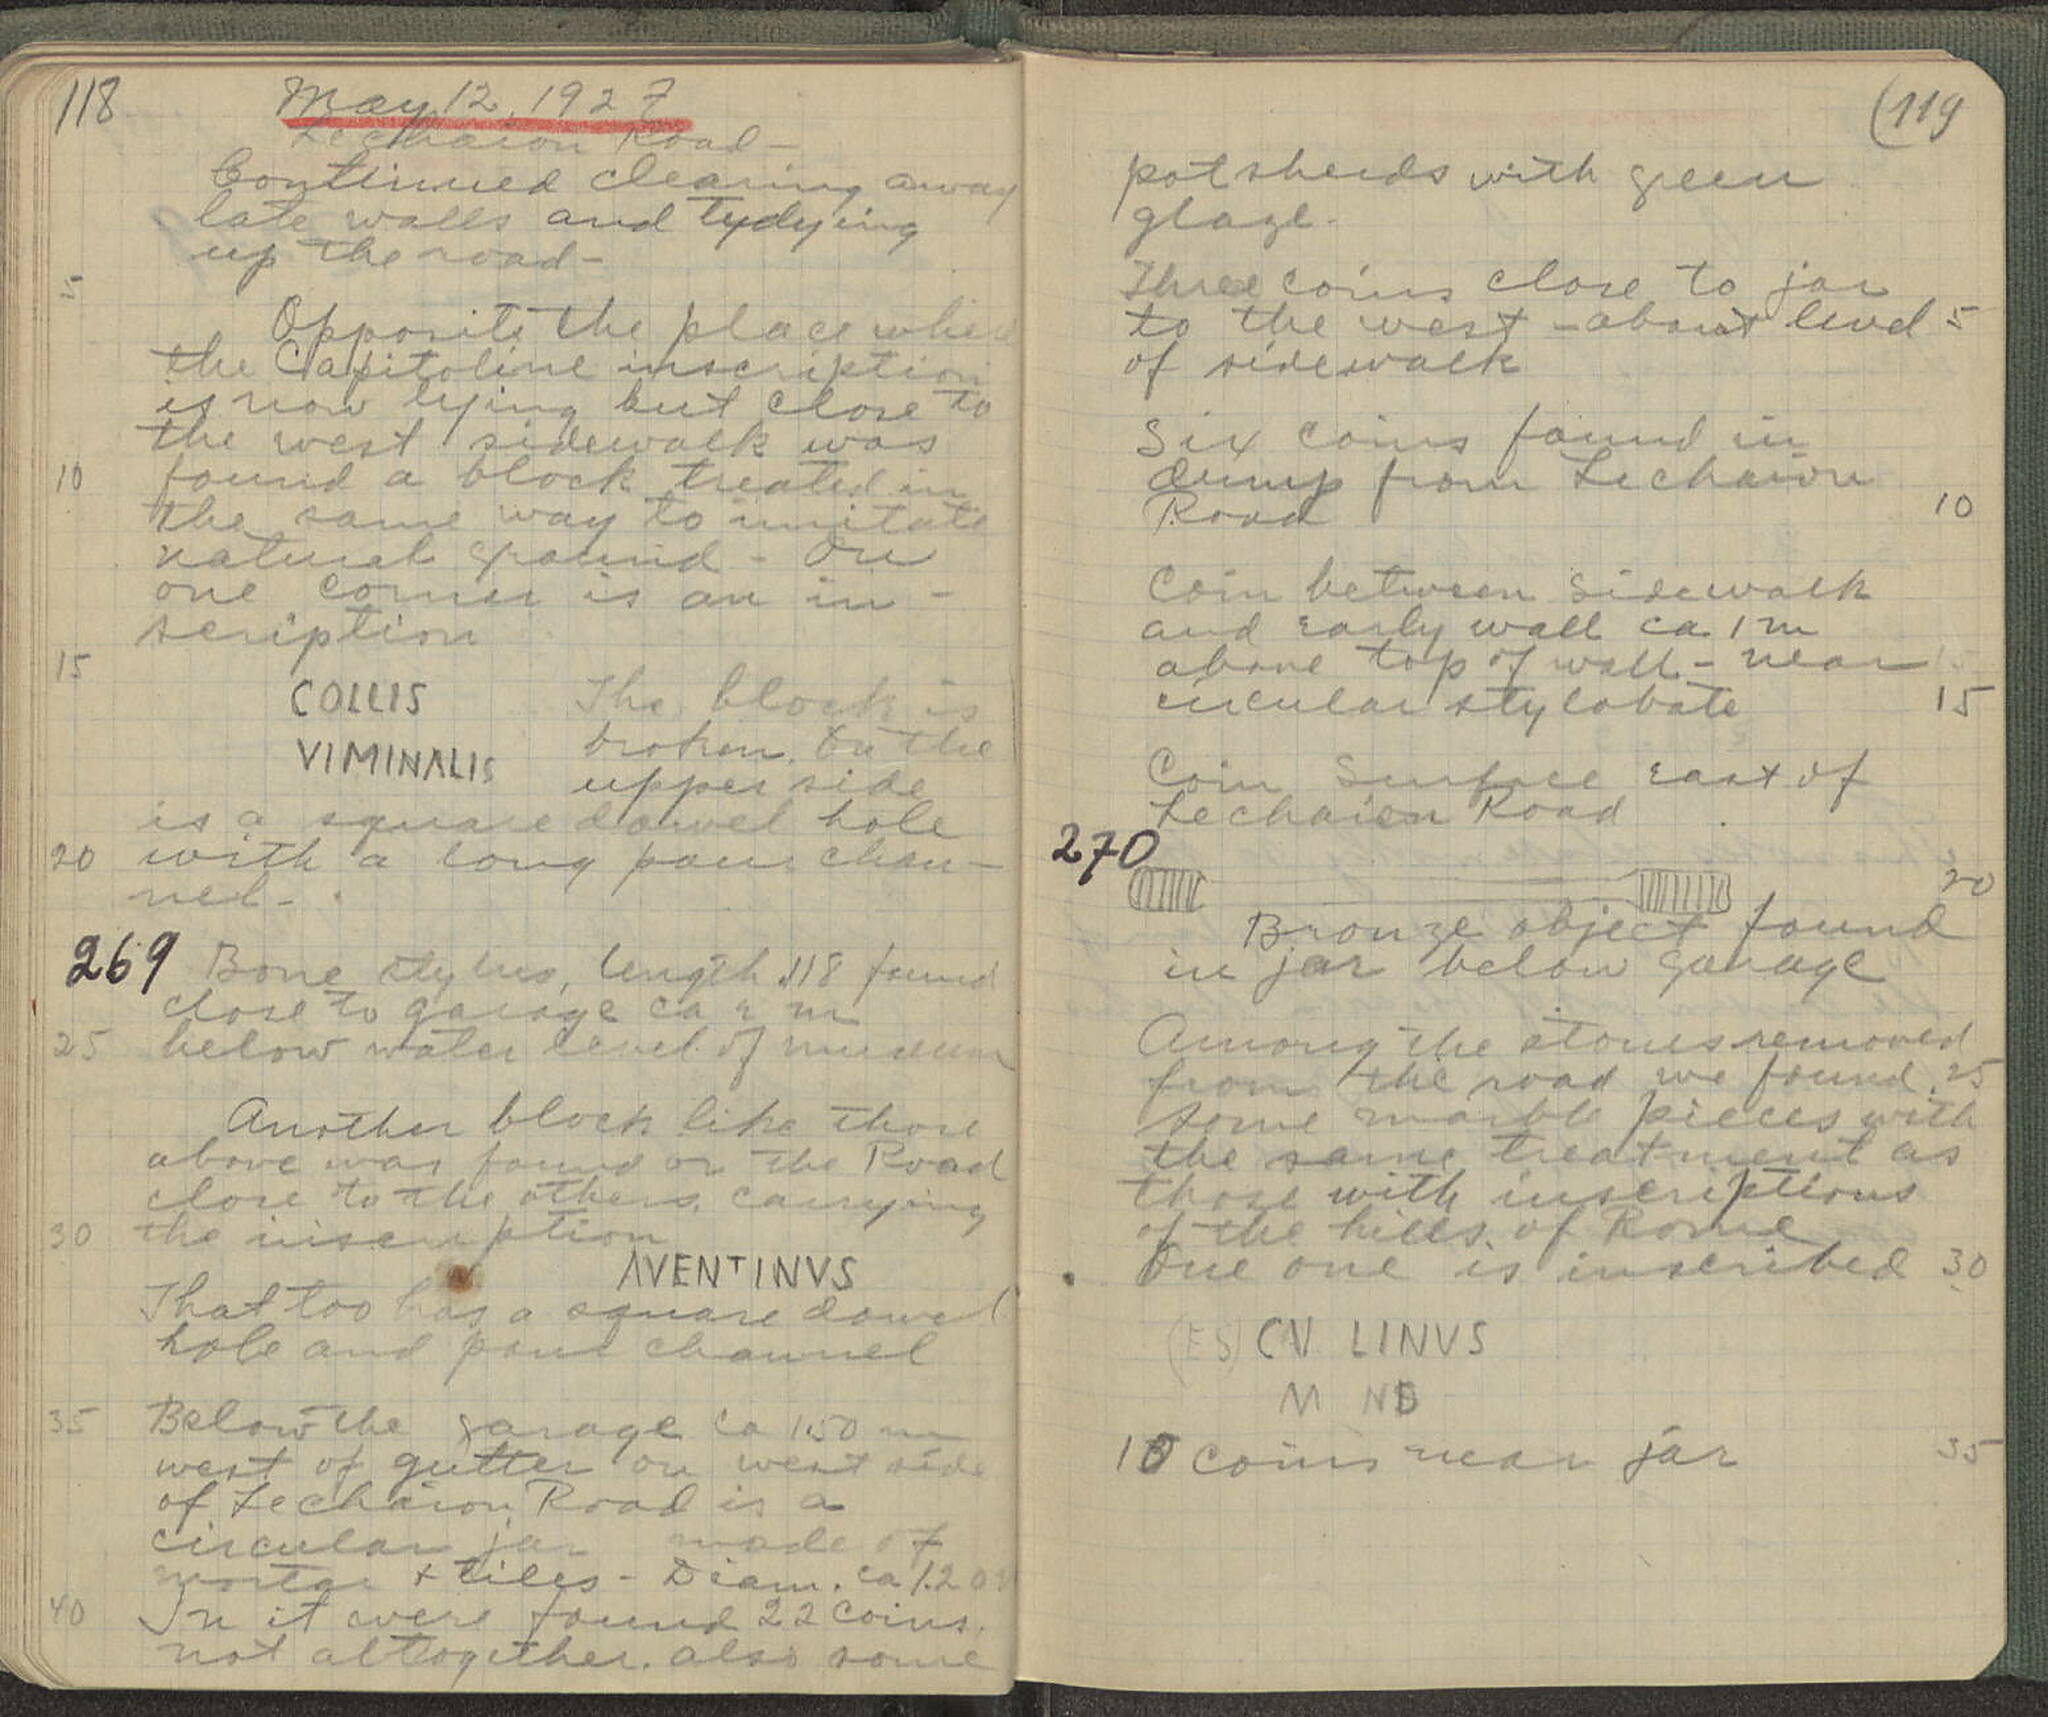 118
May 12, 1927
Lechaion Road -
Continued clearing away
late walls and tydying
up the road -
5
Opposite the place whe
the Capitoline inscription
is now lying but close to
the west sidewalk was
10 found a block treated in
the same way to imitate
natural ground - On
one corner is an in-
scription
15
COLLIS The block is
VIMINALIS broken. On the
upper side
is a square dowel hole
20 with a long pour chan-
nel -
269 Bone stylus, length .118 found
close to garage ca m
25 below water level of museum
Another block like those
above was found on the Road
close to the others, carrying
30 the inscription
AVENTINVS
That too has a square dowel
hole and pour channel
35 Below the garage ca 1.50 m
west of gutter on west side
of Lechaion Road is a
circular jar made of
mortar + tiles - Diam. ca 1.20
40 In it were found 22 coins.
not altogether. also some
119
potsherds with green
glaze.
Three coins close to jar
to the west - about level 5
of sidewalk
Six coins found in
dump from Lechaion
Road 10
Coin between sidewalk
and early wall ca 1 m
above top of wall - near
circular stylobate 15
Coin Surface east of
Lechaion Road
270
20
Bronze object found
in jar below garage
Among the stones removed
from the road we found 25
some marble pieces with
the same treatment as
those with inscriptions
of the hills of Rome
One one is inscribed 30
(ES) CV LINVS
M N
10 coins near jar 35